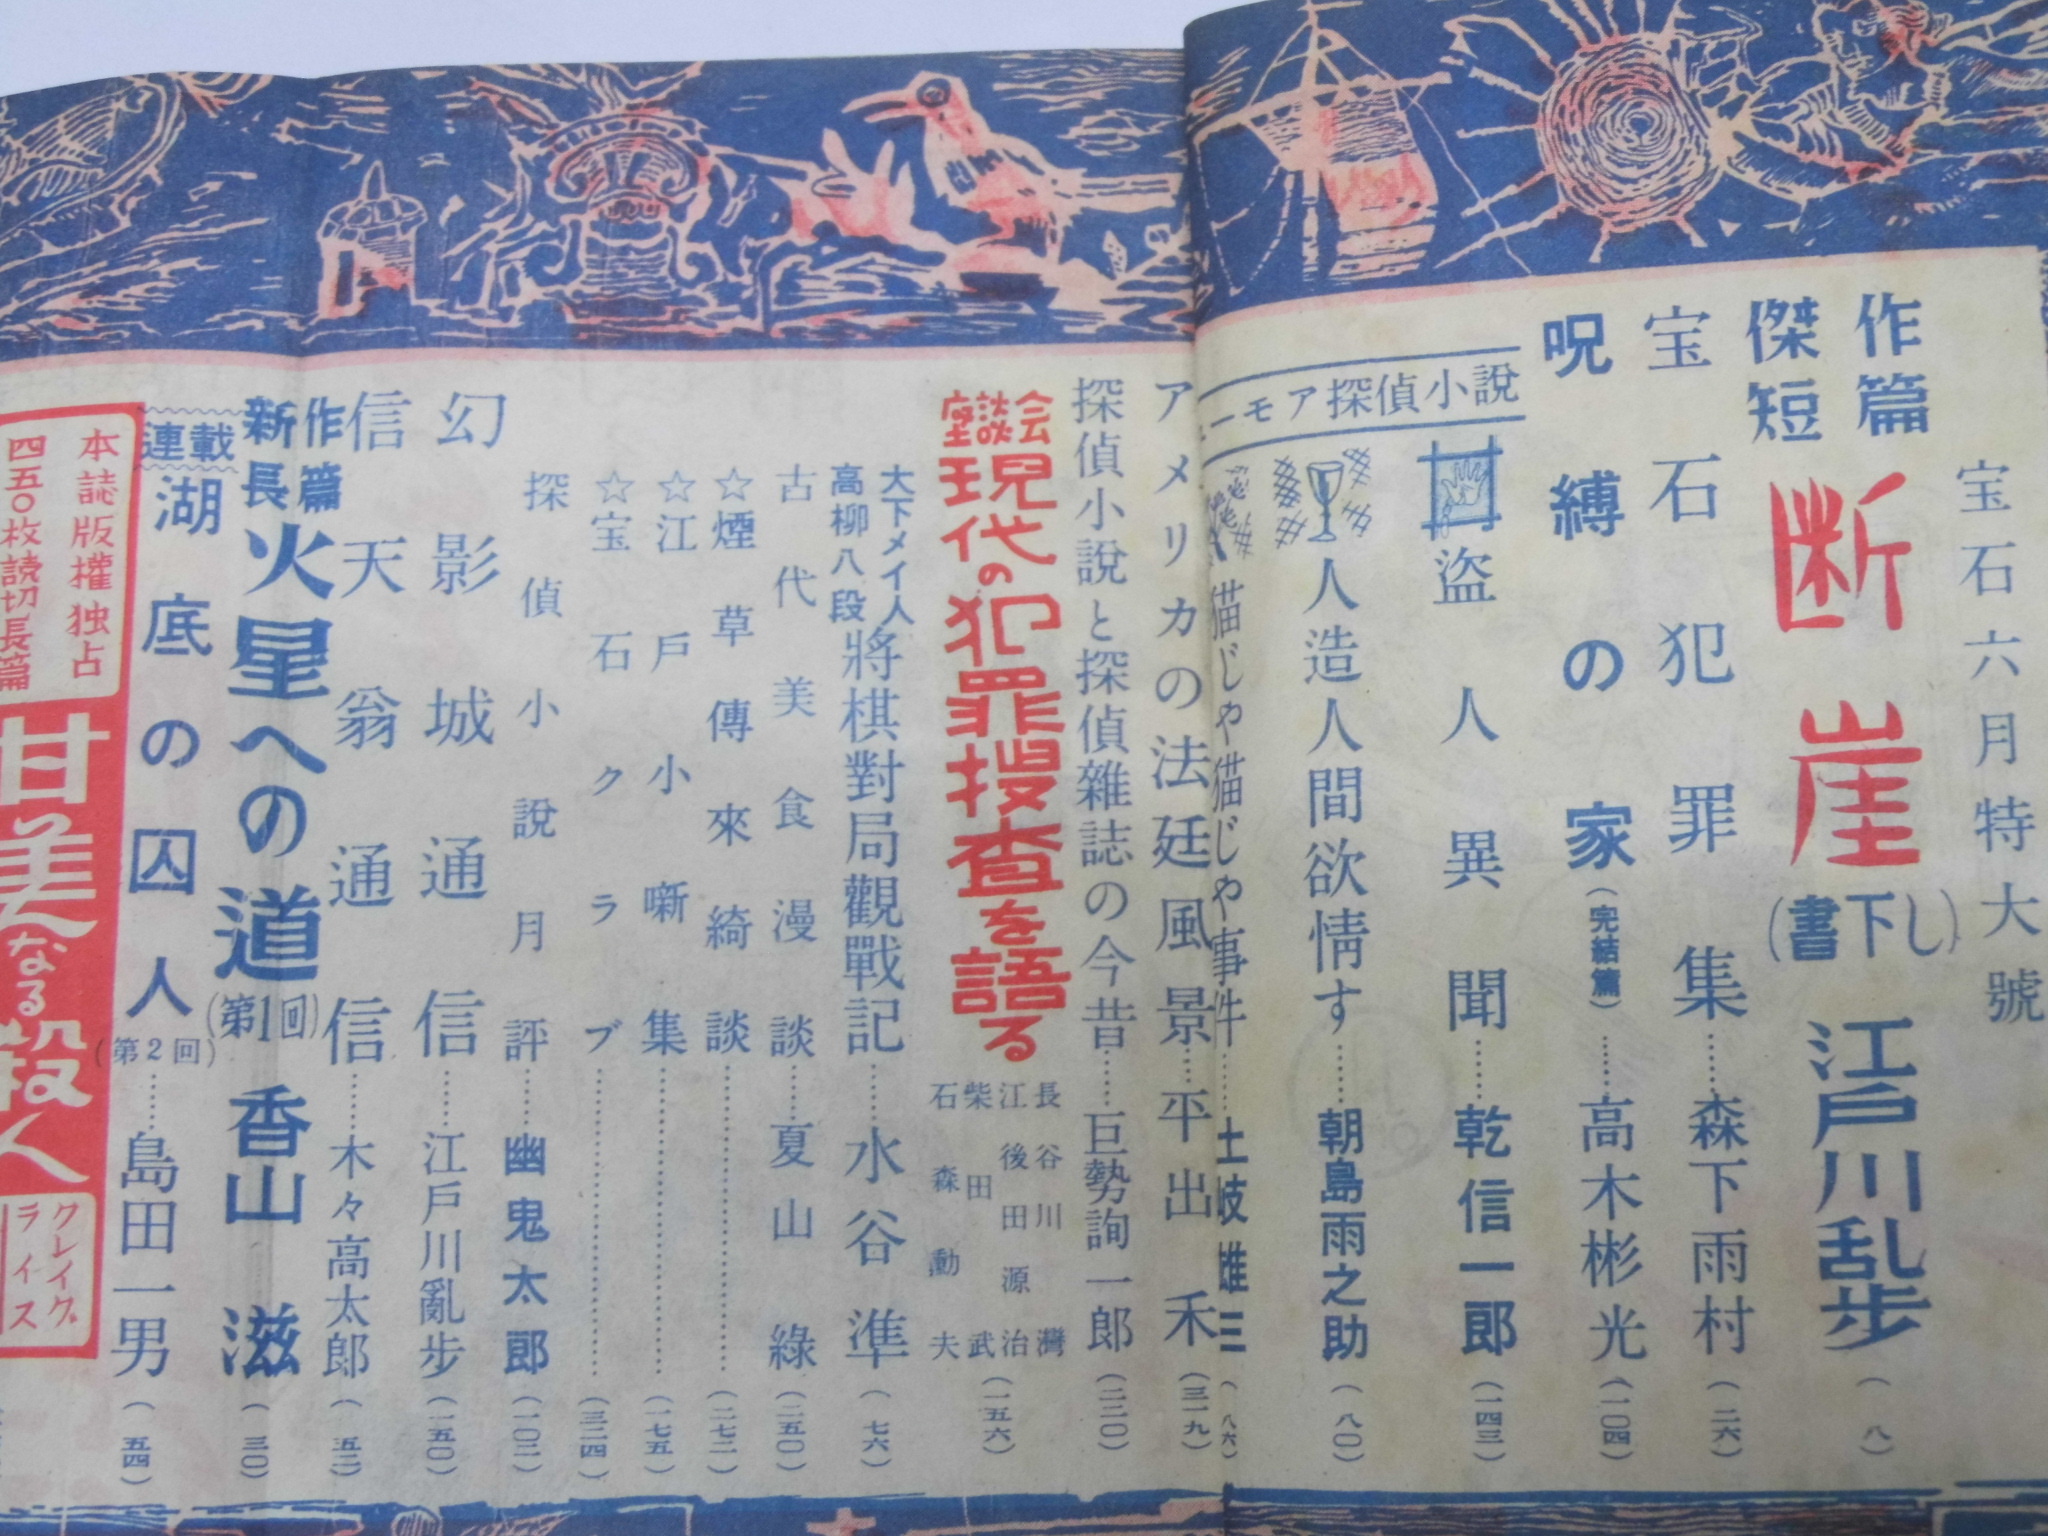 宝石六月特大號
傑作
短篇
断崖
(書下し)
江戸川乱歩
(八)
宝石犯罪集……森下雨村
(二六)
呪縛の家
(完結篇)
……高木彬光
(一〇四)
ーモア探偵小說
盗人異聞……乾信一郎
(一四三)
人造人間欲情す……朝島雨之助
(八〇)
猫じゃ猫じゃ事件……土岐雄三
(八六)
アメリカの法廷風景…平出禾
(三一九)
探偵小說と探偵雜誌の今昔……巨勢詢一郎
(二二〇)
座談会
現代の犯罪搜査を語る
長谷川灣
江後田源治
柴田武
石森勳夫
(一五六)
大下メイ人
高柳八段
將棋對局觀戰記……水谷準
(七六)
古代美食漫談……夏山綠
(二五〇)
☆煙草傳來綺談……
(二七二)
☆江戸小噺集……
(一七五)
☆宝石クラブ……
(三二四)
探偵小說月評……幽鬼太郎
(一〇二)
幻影城通信……江戸川亂步
(一五〇)
信天翁通信……木々高太郎
(五二)
新作
長篇
火星への道
(第1回)
香山滋
(三〇)
連載
湖底の囚人
(第2回)
……島田一男
(五四)
本誌版權独占
四五〇枚読切長篇
甘美なる殺人
クレイグ
ライス